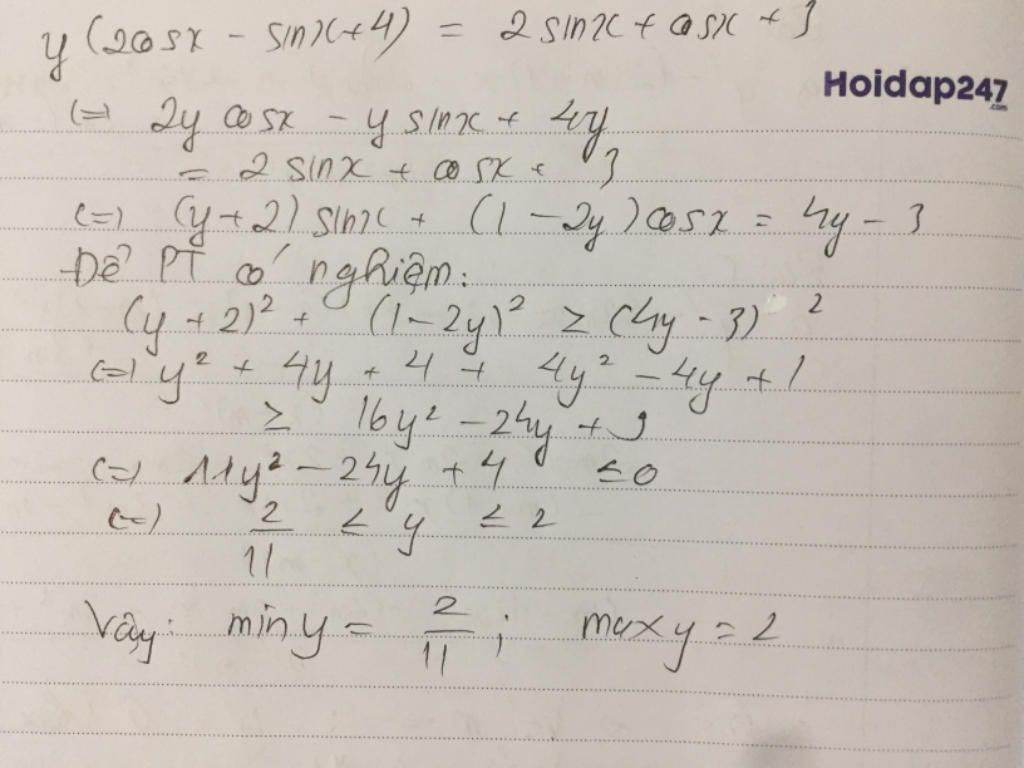 y (2cosx - sinx + 4) = 2 sinx + cosx + 3
Hoidap247
.com
(=) 2y cosx - y sinx + 4y
= 2 sinx + cosx + 3
(=) (y + 2) sinx + (1 - 2y) cosx = 4y - 3
Để PT có nghiệm:
(y + 2)² + (1 - 2y)² ≥ (4y - 3)²
(=) y² + 4y + 4 + 4y² - 4y + 1
≥ 16y² - 24y + 9
(=) 11y² - 24y + 4 ≤ 0
(=) 2/11 ≤ y ≤ 2
Vậy: min y = 2/11 ; max y = 2